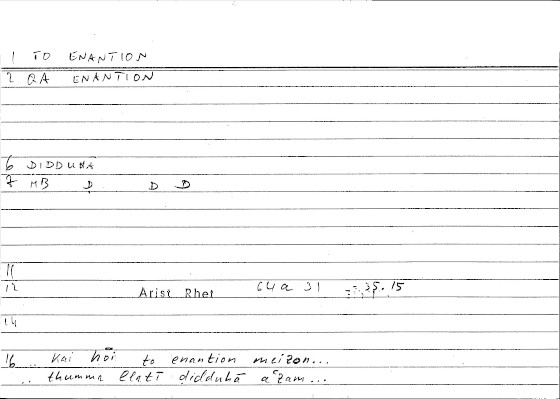 1 TO ENANTION
2 QA ENANTION
6 DIDDUHĀ
7 MB D D D
11
12 Arist Rhet 64a 31 35.15
14
16 .. Kai hōi to enantion meizon...
.. thumma llatī didduhā aʿzam...